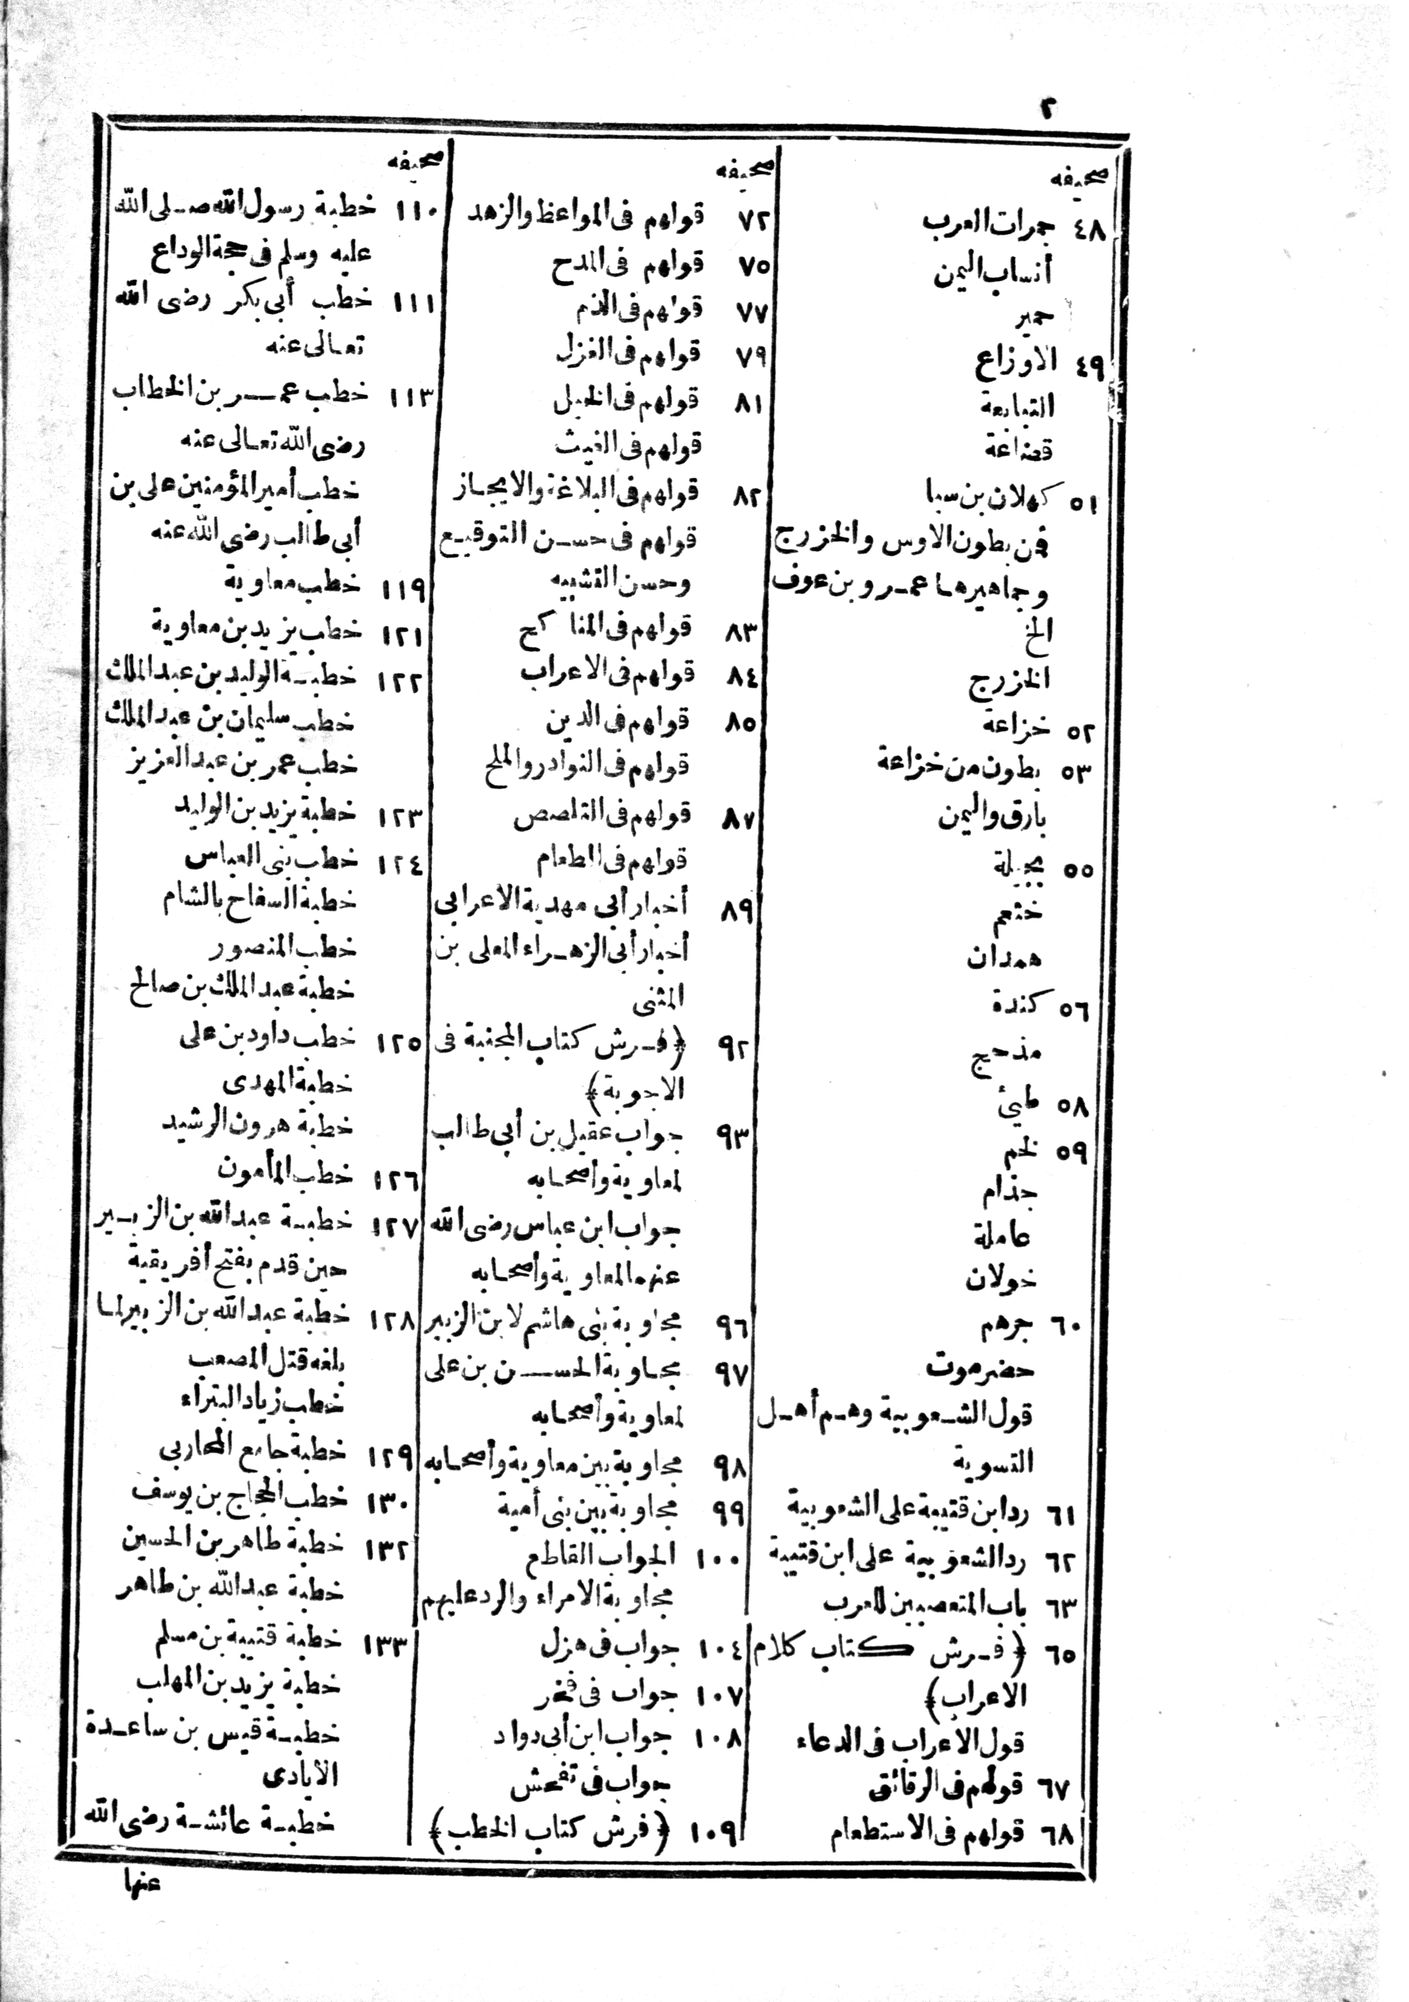 ٢
صحيفه
٤٨ جمرات العرب
أنساب اليمن
حمير
٤٩ الاوزاع
التبابعة
قضاعة
٥١ كهلان بن سبا
فمن بطون الاوس والخزرج
وجماهيرها عمرو بن عوف
الخ
الخزرج
٥٢ خزاعة
٥٣ بطون من خزاعة
بارق واليمن
٥٥ بجيلة
خثعم
همدان
٥٦ كندة
مذحج
٥٨ طيئ
٥٩ لخم
جذام
عاملة
خولان
٦٠ جرهم
حضرموت
قول الشعوبية وهم أهل
التسوية
٦١ رد ابن قتيبة على الشعوبية
٦٢ رد الشعوبية على ابن قتيبة
٦٣ باب المتعصبين للعرب
٦٥ ﴿فرش كتاب كلام
الاعراب﴾
قول الاعراب فى الدعاء
٦٧ قولهم فى الرقائق
٦٨ قولهم فى الاستطعام
صحيفه
٧٢ قولهم فى المواعظ والزهد
٧٥ قولهم فى المدح
٧٧ قولهم فى الذم
٧٩ قولهم فى الغزل
٨١ قولهم فى الخيل
قولهم فى الغيث
٨٢ قولهم فى البلاغة والايجاز
قولهم فى حسن التوقيع
وحسن التشبيه
٨٣ قولهم فى المناكح
٨٤ قولهم فى الاعراب
٨٥ قولهم فى الدين
قولهم فى النوادر والملح
٨٧ قولهم فى التلصص
قولهم فى الطعام
٨٩ أخبار أبى مهدية الاعرابى
أخبار أبى الزهراء المعلى بن
المثنى
٩٢ ﴿فرش كتاب المجنبة فى
الاجوبة﴾
٩٣ جواب عقيل بن أبى طالب
لمعاوية وأصحابه
جواب ابن عباس رضى الله
عنهما لمعاوية وأصحابه
٩٦ مجاوبة بنى هاشم لابن الزبير
٩٧ مجاوبة الحسن بن على
لمعاوية وأصحابه
٩٨ مجاوبة بين معاوية وأصحابه
٩٩ مجاوبة بين بنى أمية
١٠٠ الجواب القاطع
مجاوبة الامراء والرد عليهم
١٠٤ جواب فى هزل
١٠٧ جواب فى فخر
١٠٨ جواب ابن أبى دواد
جواب فى تفحش
١٠٩ ﴿فرش كتاب الخطب﴾
صحيفه
١١٠ خطبة رسول الله صلى الله
عليه وسلم فى حجة الوداع
١١١ خطب أبى بكر رضى الله
تعالى عنه
١١٣ خطب عمر بن الخطاب
رضى الله تعالى عنه
خطب أمير المؤمنين على بن
أبى طالب رضى الله عنه
١١٩ خطب معاوية
١٢١ خطب يزيد بن معاوية
١٢٢ خطبة الوليد بن عبد الملك
خطب سليمان بن عبد الملك
خطب عمر بن عبد العزيز
١٢٣ خطبة يزيد بن الوليد
١٢٤ خطب بنى العباس
خطبة السفاح بالشام
خطب المنصور
خطبة عبد الملك بن صالح
١٢٥ خطب داود بن على
خطبة المهدى
خطبة هرون الرشيد
١٢٦ خطب المأمون
١٢٧ خطبة عبد الله بن الزبير
حين قدم بفتح أفريقية
١٢٨ خطبة عبد الله بن الزبير لما
بلغه قتل المصعب
خطب زياد البتراء
١٢٩ خطبة جامع المحاربى
١٣٠ خطب الحجاج بن يوسف
١٣٢ خطبة طاهر بن الحسين
خطبة عبد الله بن طاهر
١٣٣ خطبة قتيبة بن مسلم
خطبة يزيد بن المهلب
خطبة قيس بن ساعدة
الايادى
خطبة عائشة رضى الله
عنها